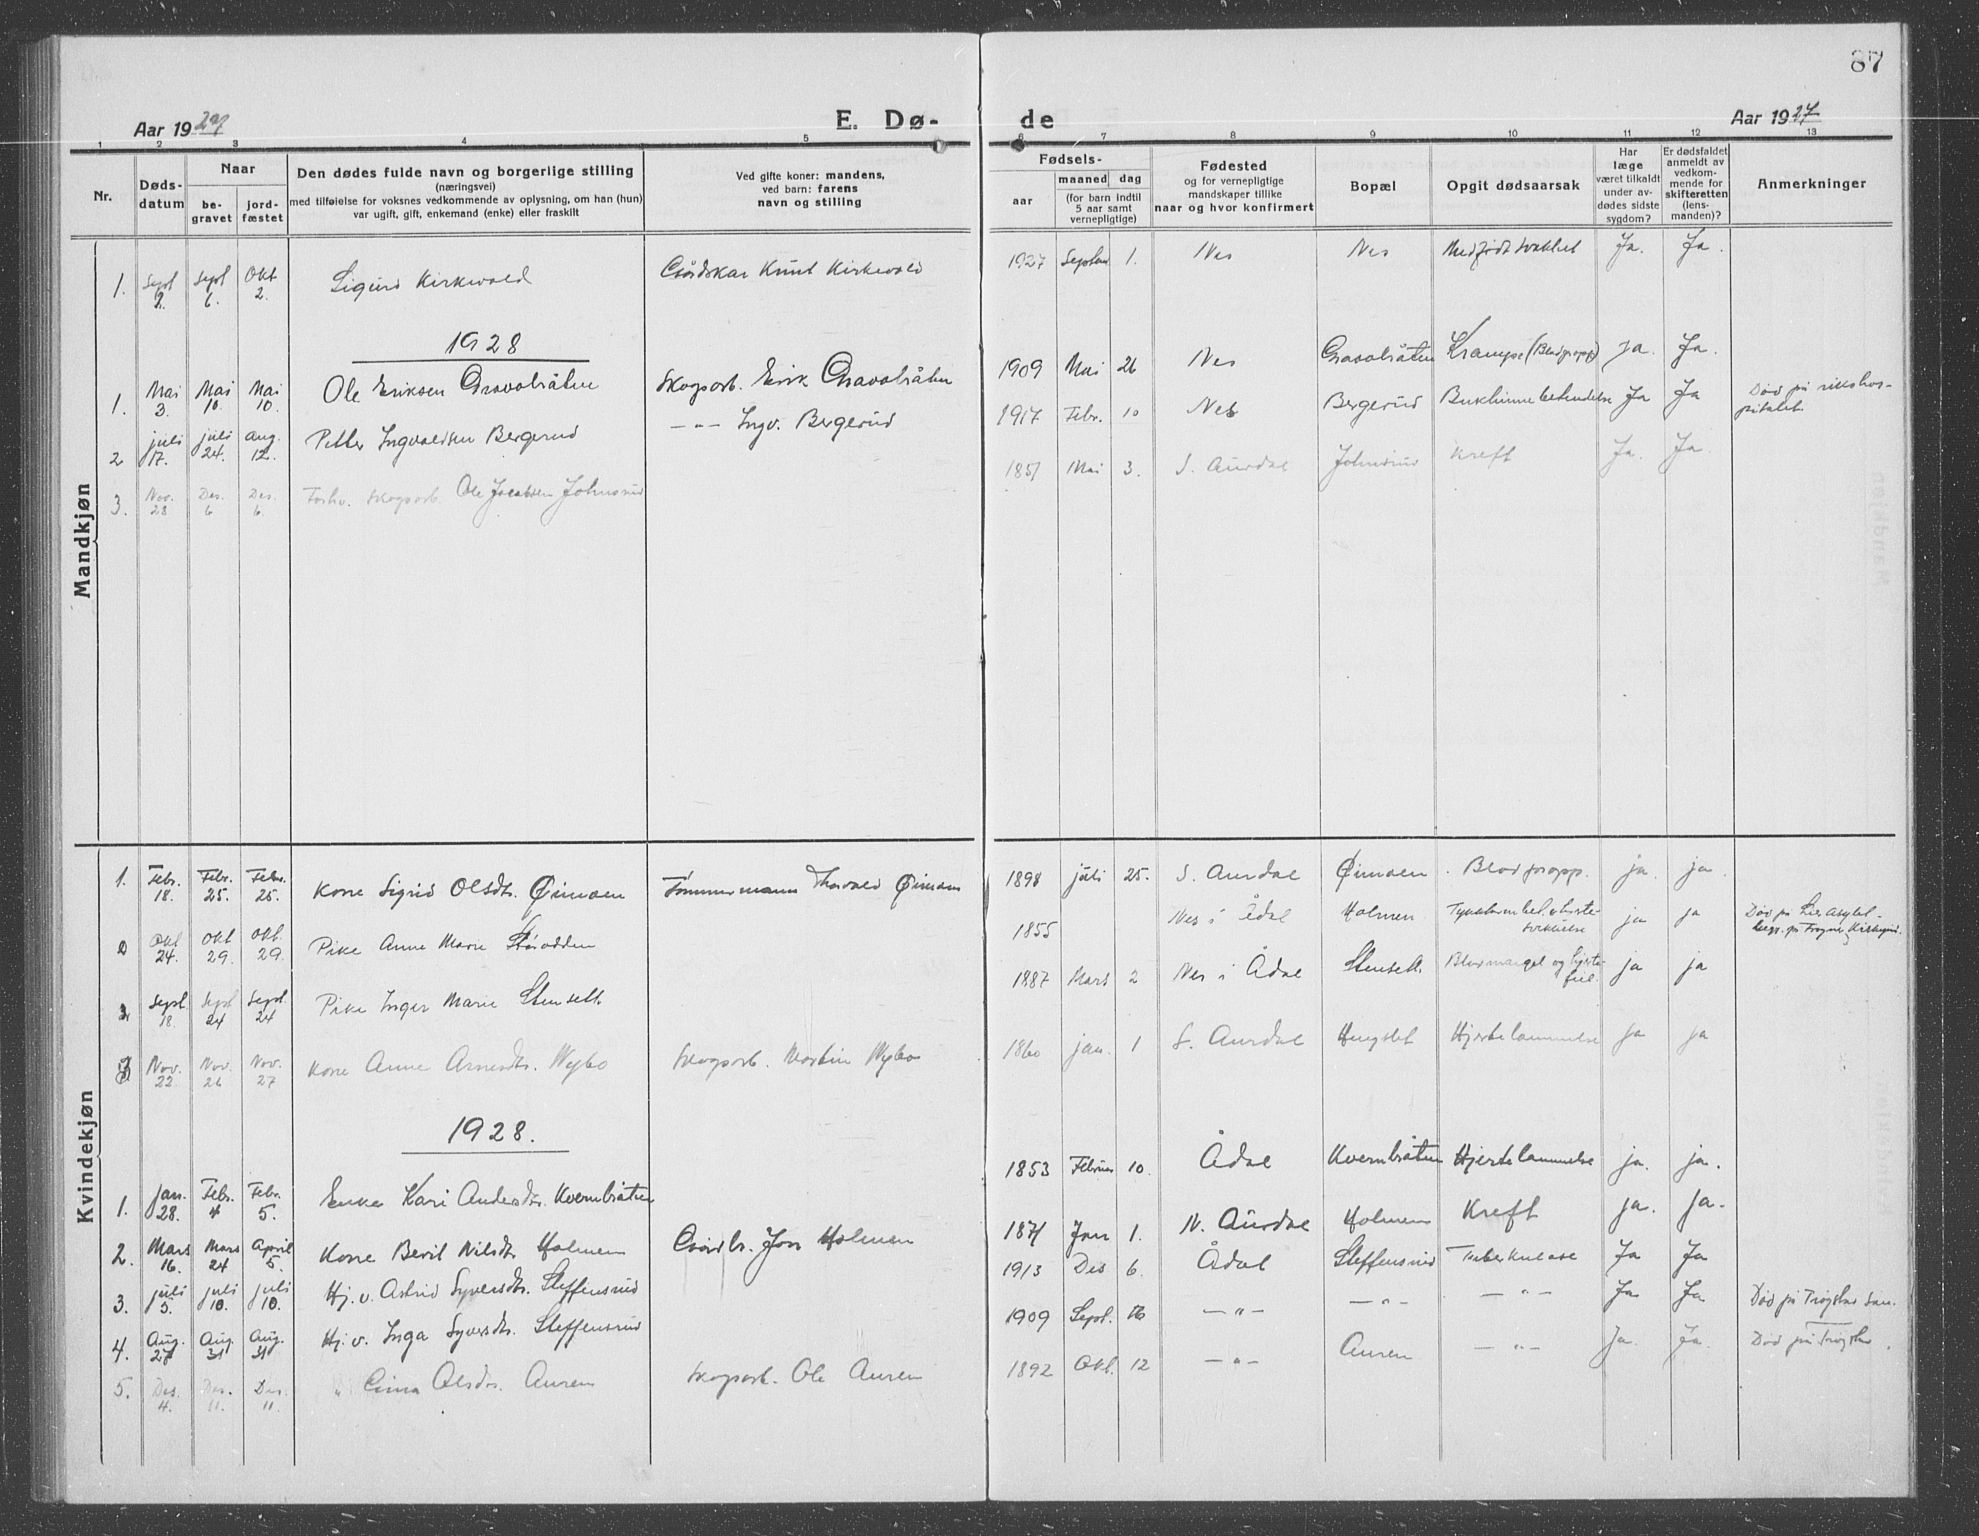 87
Aar 1927
E. Dø-
de
Aar 1927
1 2 3 4 5 6 7 8 9 10 11 12 13
Nr.
Døds-
datum
Naar
be-
gravet
jord-
fæstet
Den dødes fulde navn og borgerlige stilling
(næringsvei)
med tilføielse for voksnes vedkommende av oplysning, om han (hun)
var ugift, gift, enkemand (enke) eller fraskilt
Ved gifte koner: mandens,
ved barn: farens
navn og stilling
Fødsels-
aar
maaned dag
(for barn indtil
5 aar samt
vernepligtige)
Fødested
og for vernepligtige
mandskaper tillike
naar og hvor konfirmert
Bopæl
Opgit dødsaarsak
Har
læge
været tilkaldt
under av-
dødes sidste
sygdom?
Er dødsfaldet
anmeldt av
vedkom-
mende for
skifteretten
(lens-
manden)?
Anmerkninger
Mandkjøn
1. Sept 2. Sept 6. Okt 2. Sigurd Kirkvold Gårdskar Knut Kirkevold 1927 Septbr 1. Nes Nes Medfødt svakhet Ja. Ja.
1928
1. Mai 3. Mai 10. Mai 10. Ole Eriksen Gravalråten Skogsarb. Erik Gravalråten 1909 Mai 26 Nes Gravalråten Krampe (Blodpropp) ja. Ja.
2 juli 17. juli 24. Aug. 12. Petter Ingvaldsen Bergerud —"— Ingv. Bergerud 1917 Febr. 10 Nes Bergerud Bukhinnebetendelse Ja Ja Død på rikshos-
pitalet.
3. Nov. 28 Des. 6 Des. 6. Forhv. skogsarb. Ole Jacobsen Johnsrud 1851 Mai 3. S. Aurdal Johnsrud Kreft Ja. Ja.
Kvindekjøn
1. Febr. 18. Febr. 25. Febr. 25. Kone Sigrid Olsdtr. Øimoen Tømmermann Thorvald Øimoen 1898 juli 25. S. Aurdal Øimoen Blodpropp. ja. ja.
2 Okt 24. Okt 29. Okt. 29. Pike Anne Marie 1855 Nes i Ådal Holmen Tykktarmbet. & hjerte-
svikkelse ja ja Død på Lier Asylet.
begr. på Frogner Kirkegård.
3 Sept. 18. Sept 24 Sept 24 Pike Inger Marie Stensett 1887 Mars 2 Nes i Ådal Stensett Blodmangel og hjerte-
feil. ja ja
Nov. 22. Nov. 26 Nov. 27 Kone Anne Arnesdtr. Nybo Skogsarb. Martin Nybo 1860 jan. 1 S. Aurdal Hjertelammelse ja ja
1928.
1. Jan. 28. Febr. 4 Febr. 5. Enke Kari Andersdtr. Kvernbråten 1853 Februar 10. Ådal Kvernbråten Hjertelammelse ja. ja.
2. Mars 16. Mars 24 April 5. Kone Berit Nilsdtr Holmen Gårdbr. Jon Holmen 1871 Jan 1. N. Aurdal Holmen Kreft ja. ja.
3. juli 5. juli 10. juli 10. Hj. v. Astrid Syversdtr. Steffensrud 1913 Des 6. Ådal Steffensrud Tuberkulose Ja Ja
4. Aug. 27 Aug. 31 Aug. 31 Hj. v. Inga Syversdtr. Steffensrud 1909 Sept. —"— —"— —"— Ja Ja Død på Trøgstad San.
5. Des. 4. Des. 11. Des. 11. " Olsdtr. Auren Skogsarb. Ole Auren 1892 Okt. 12 —"— Auren —"— Ja. Ja. Død på Trøgstad